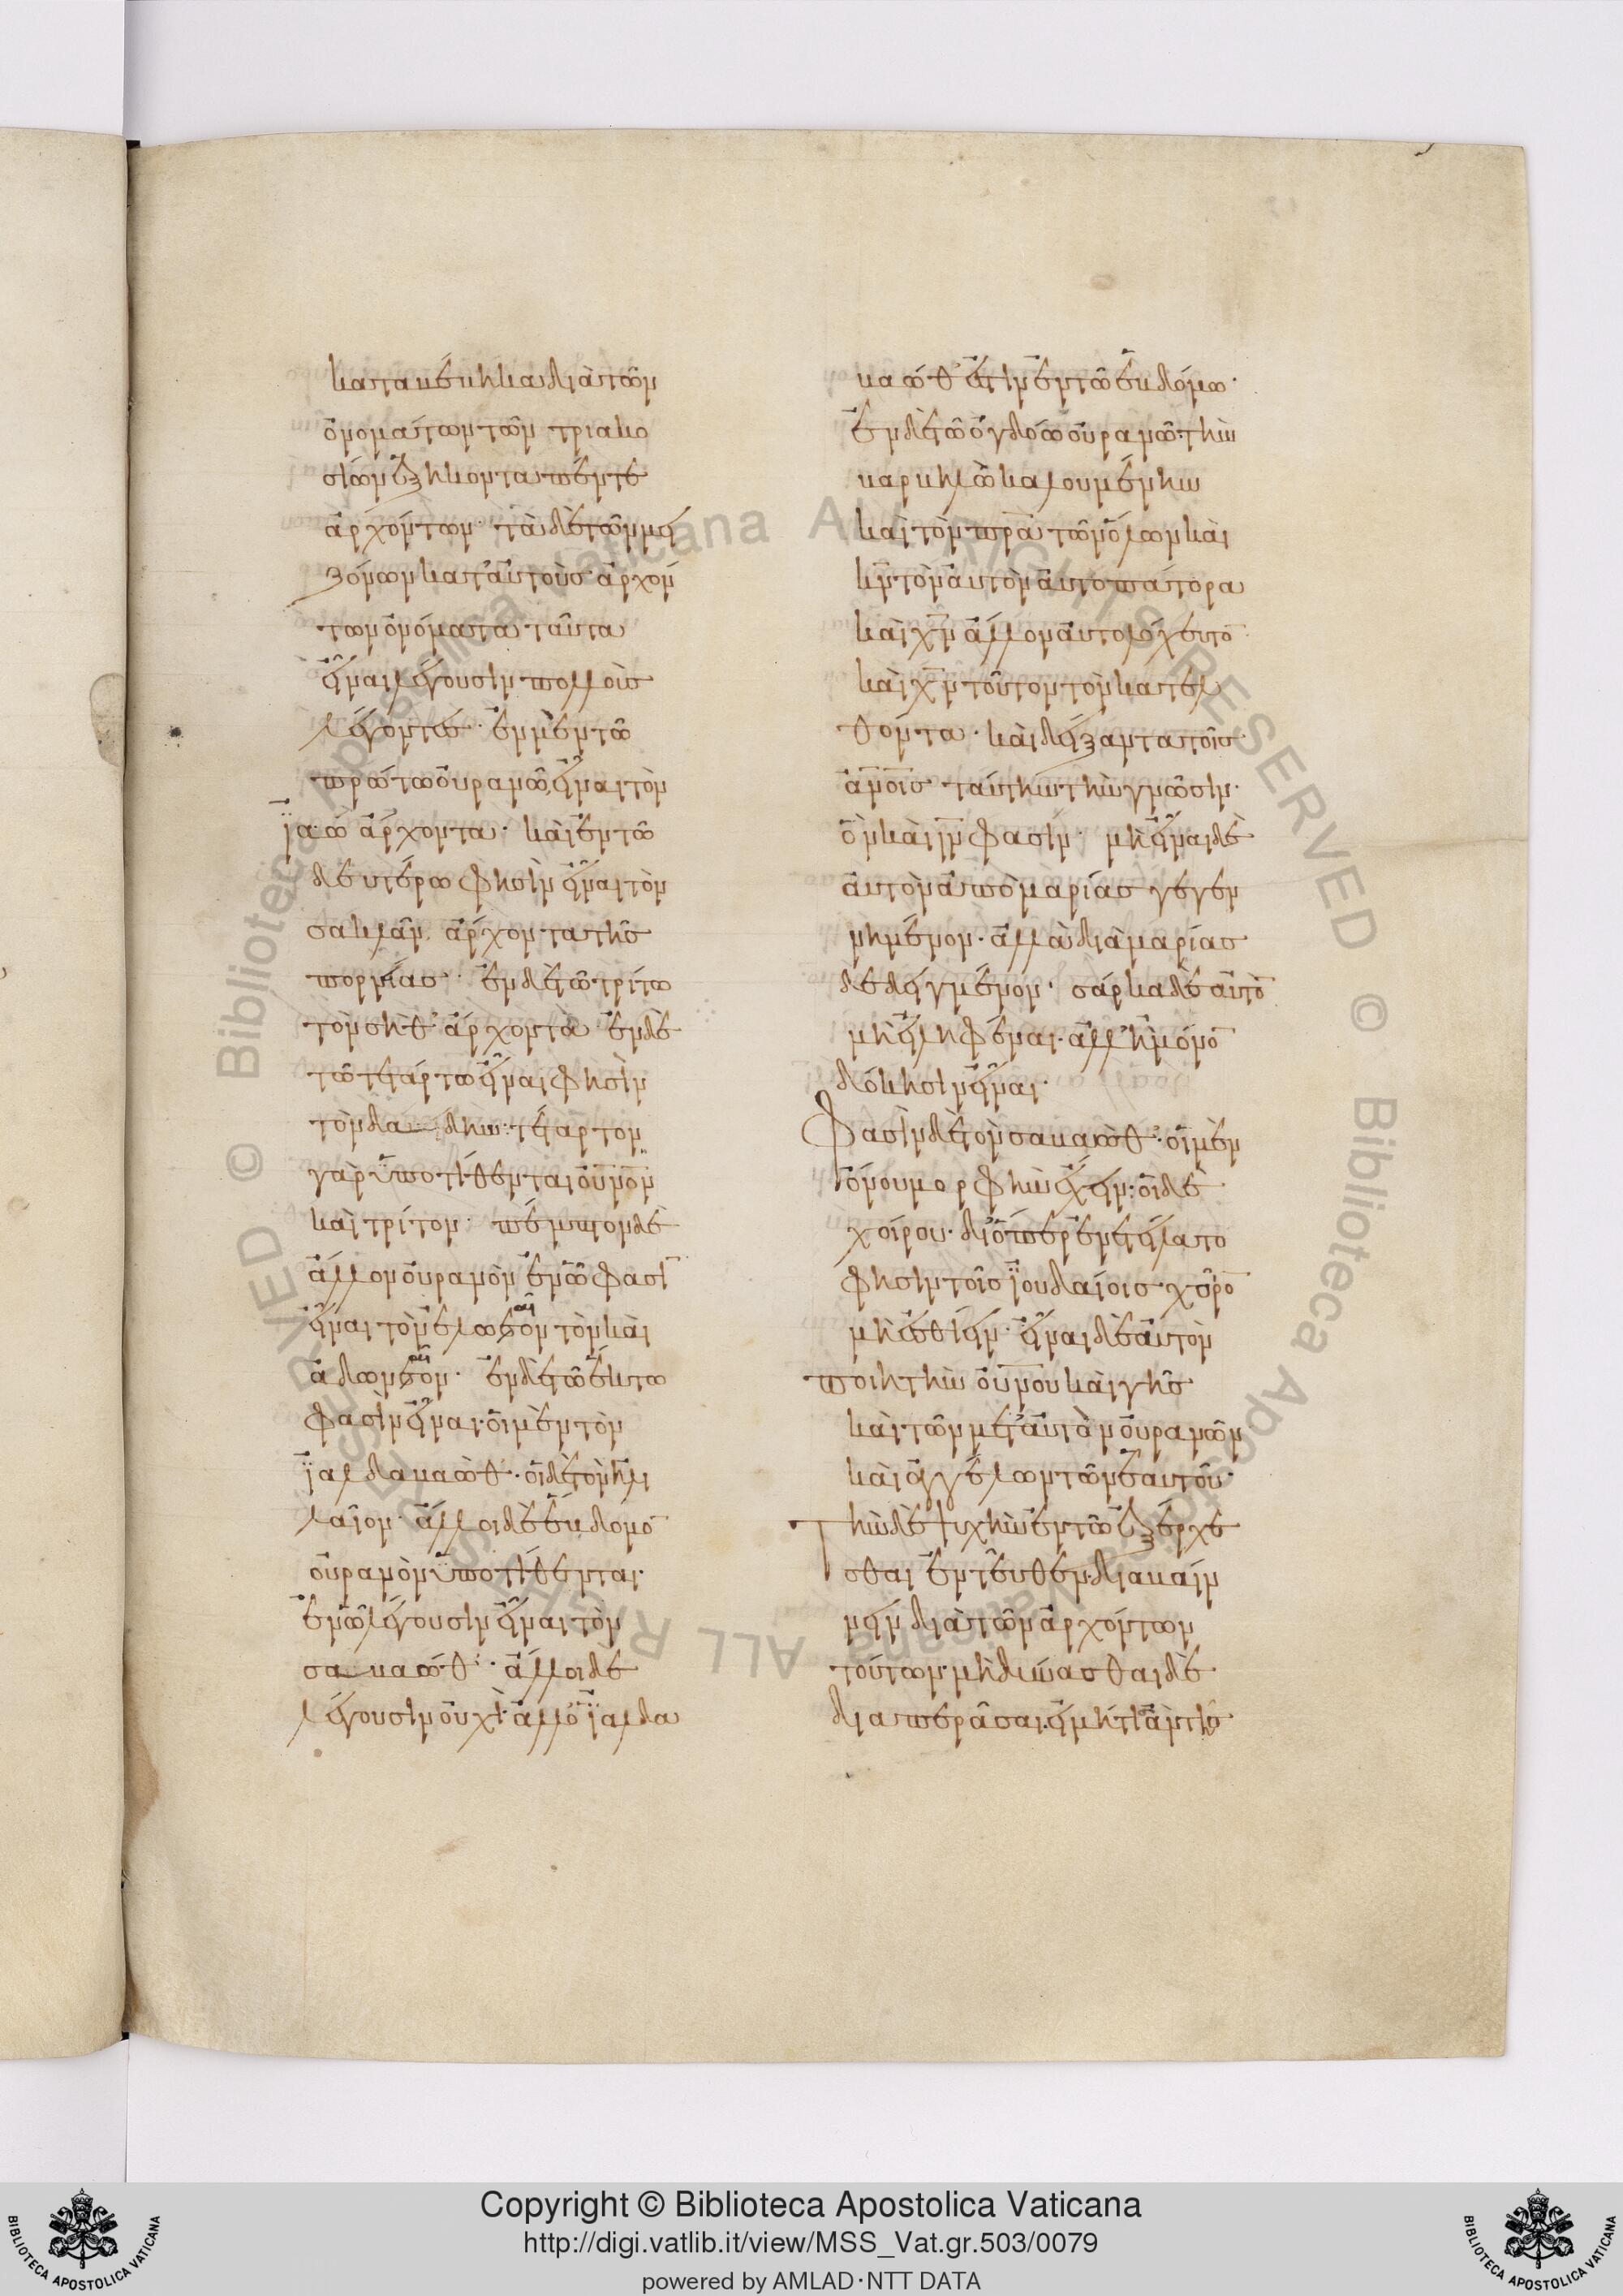 καταβέβηκα διὰ τῶν
ὀνομάτων τῶν τριακο
σίων ἑξήκοντα πέντε
ἀρχόντων· τὰ δὲ τῶν μει
ζόνων κατ' αὐτοὺς ἀρχόν
των ὀνόματα ταῦτα
εἶναι λέγουσιν πολλοὺς
λέγοντες· ἐν μὲν τῶ
πρώτω οὐρανῶ εἶναι τὸν
ϊαὼ ἄρχοντα· καὶ ἐν τῶ
δευτέρω φησὶν εἶναι τὸν
σακλᾶν ἄρχοντα τῆς
πορνείας· ἐν δὲ τῶ τρίτω
τὸν σὴθ ἄρχοντα· ἐν δὲ
τῶ τετάρτω εἶναι φησὶν
τὸν δαδην· τέταρτον
γὰρ ὑποτίθενται οὐνὸν
καὶ τρίτον· πέμπτον δὲ
ἄλλον οὐρανὸν ἐν ᾧ φασὶ
εἶναι τὸν ἐλωεὸν τὸν καὶ
ἀδωνεὸν· ἐν δὲ τῶ ἕκτω
φασὶν εἶναι· οἱ μὲν τὸν
ϊαλδαβαὼθ· οἱ δὲ τὸν ἠλι
λαῖον· ἄλλοι δὲ ἕβδομο
οὐρανὸν ὑποτίθενται·
ἐν ᾧ λέγουσιν εἶναι τὸν
σαβαώθ· ἄλλοι δὲ
λέγουσιν οὐχὶ· ἀλλ' ὁ ϊαλδα
βαώθ ἐστιν ἐν τῶ ἑβδόμω·
ἐν δὲ τῶ ὀγδόω οὐρανῶ· τὴν
βαρβηλὼ καλουμένην
καὶ τὸν πρα τῶν ὅλων καὶ
κν τὸν αὐτὸν αὐτοπάτορα
καὶ χν ἄλλον αὐτολόχευτο
καὶ χν τοῦτον τὸν κατελ
θόντα· καὶ δείξαντα τοῖς
ανοις ταύτην τὴν γνῶσιν·
ὃν καὶ ιν φασίν· μὴ εἶναι δὲ
αὐτὸν ἀπὸ μαρίας γεγεν
νημένον· ἀλλὰ διὰ μαρίας
δεδειγμένον· σάρκα δὲ αὐτὸ
μὴ εἰληφέναι· ἀλλ' ἢ μόνο
δόκησιν εἶναι·
Φασὶν δὲ τὸν σαβαὼθ· οἱ μὲν
ὄνου μορφὴν ἔχειν· οἱ δὲ
χοίρου· διόπερ ἐνετείλατο
φησὶν τοῖς ϊουδαίοις χοῖρο
μὴ ἐσθίειν· εἶναι δὲ αὐτὸν
ποιητὴν οὐνου καὶ γῆς
καὶ τῶν μετ' αὐτὸν οὐρανῶν
καὶ ἀγγέλων τῶν ἑαυτοῦ·
Τὴν δὲ ψυχὴν ἐν τῶ ἐξέρχε
σθαι ἐντεῦθεν διαβαίν
νειν διὰ τῶν ἀρχόντων
τούτων· μὴ δύνασθαι δὲ
διαπερᾶσαι· εἰ μήτι ἂν τῆς